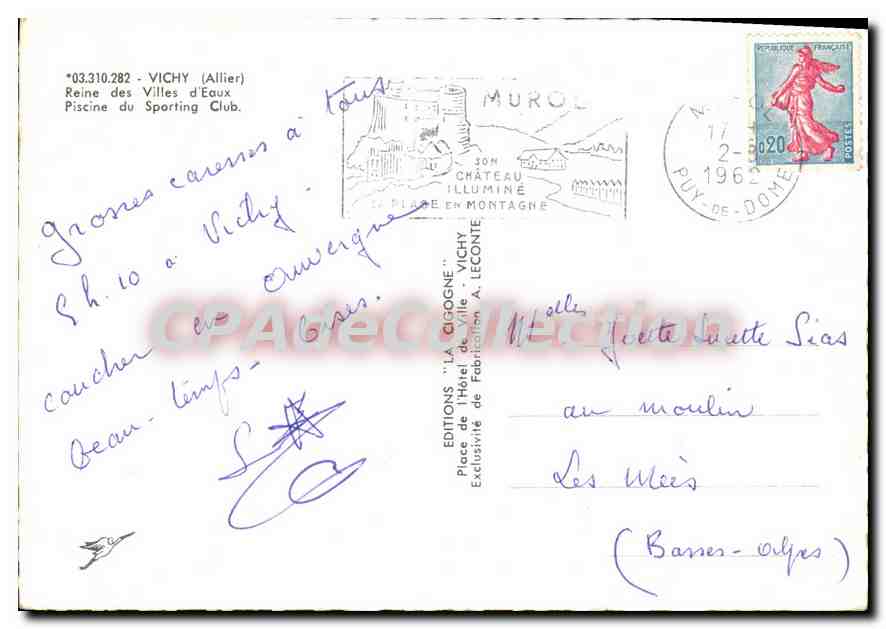 *03.310.282 - VICHY (Allier)
Reine des Villes d'Eaux
Piscine du Sporting Club.
Grosses caresses à tous
5h.10 à Vichy.
coucher en Auvergne
beau-temps- bises.
MUROL
SON
CHÂTEAU
ILLUMINÉ
SA PLAGE EN MONTAGNE
17
2-
1962
PUY-DE-DOME
REPUBLIQUE FRANÇAISE
0,20
POSTES
EDITIONS "LA CIGOGNE"
Place de l'Hôtel de Ville - VICHY
Exclusivité de Fabrication A. LECONTE
CPAdeCollection
Melles Yvette Lucette Sias
au moulin
Les Mées
(Basses-Alpes)